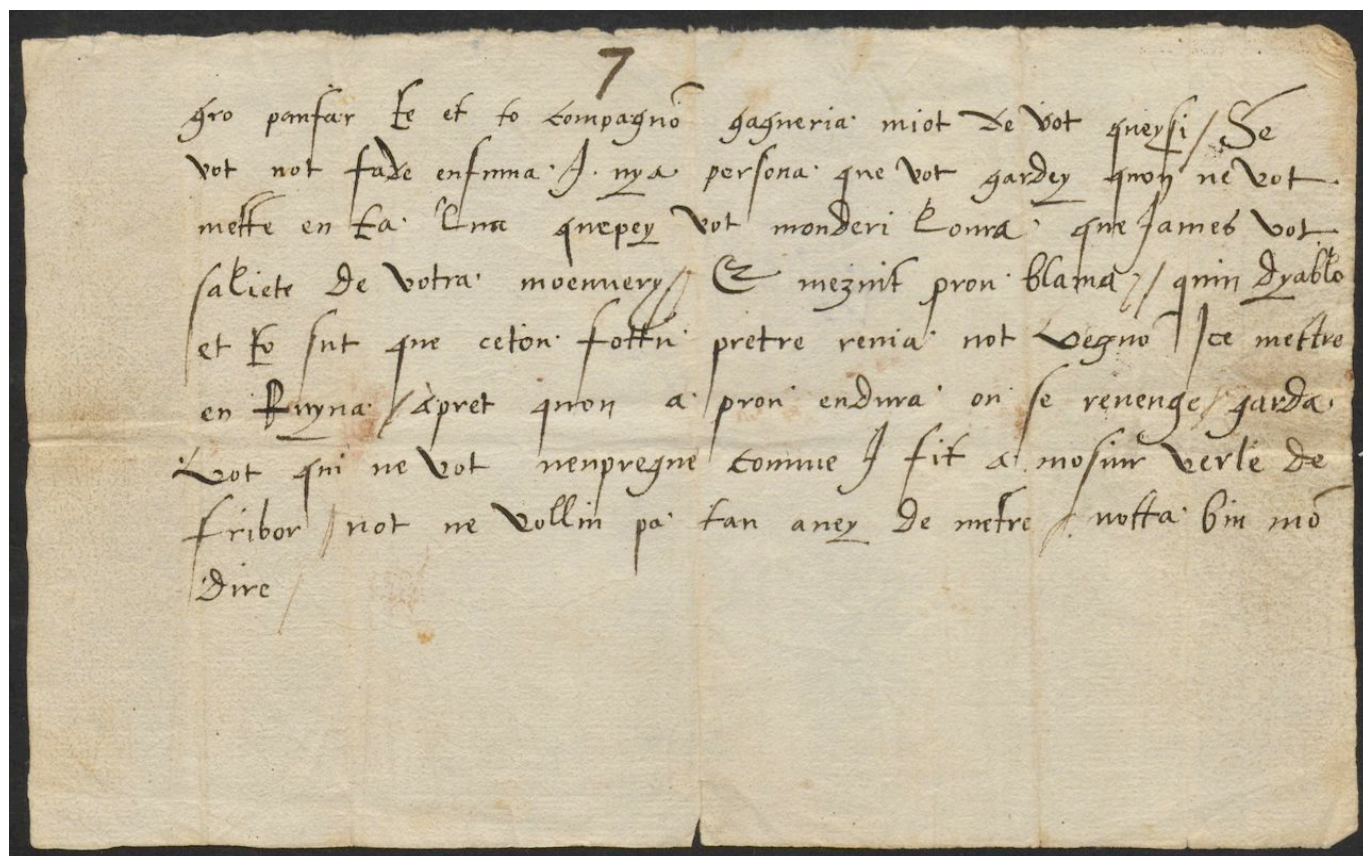 7
gro panfar te et to compagnõ gagneria miot de vot queysi / Se
vot not fade enfuma. I. nya persona que vot gardey quon ne vot
mette en ta lua quepey vot monderi loura que James vot
saliete de votra moennery // Et mezuit prou blama // quin dyablo
et to sut que ceton fottu pretre renia not vegnõ Ice mettre
en Ruyna / apret quon a prou endura on se revenge / garda
vot qui ne vot nenpregne comme I fit a mosiur verle de
fribor / not ne vollin pa tan avey de metre / notta bin mõ
dire /